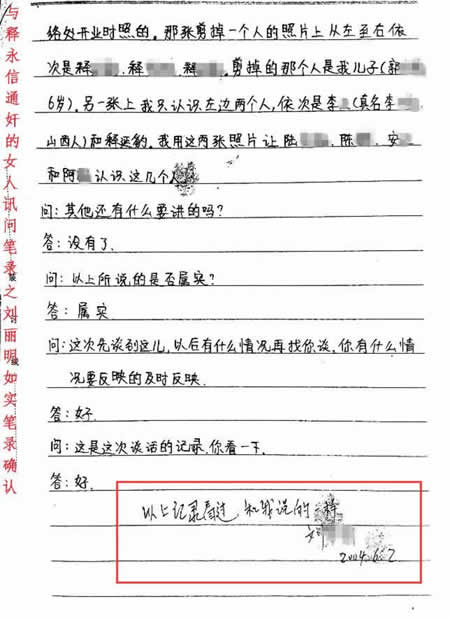 与释永信通奸的女人讯问笔录之刘丽明如实笔录确认
络处开业时照的。那张剪掉一个人的照片上从左至右依
次是释、释、释。剪掉的那个人是我儿子(郭
6岁)。另一张上我只认识左边两个人,依次是李(真名李
山西人)和释延豹。我用这两张照片让陆、陈、安
和阿认识这几个
问:其他还有什么要讲的吗?
答:没有了.
问:以上所说的是否属实?
答:属实.
问:这次先谈到这儿,以后有什么情况再找你谈,你有什么情
况要反映的及时反映.
答:好.
问:这是这次谈话的记录.你看一下.
答:好.
以上记录看过 和我说的一样
刘
2004.6.2